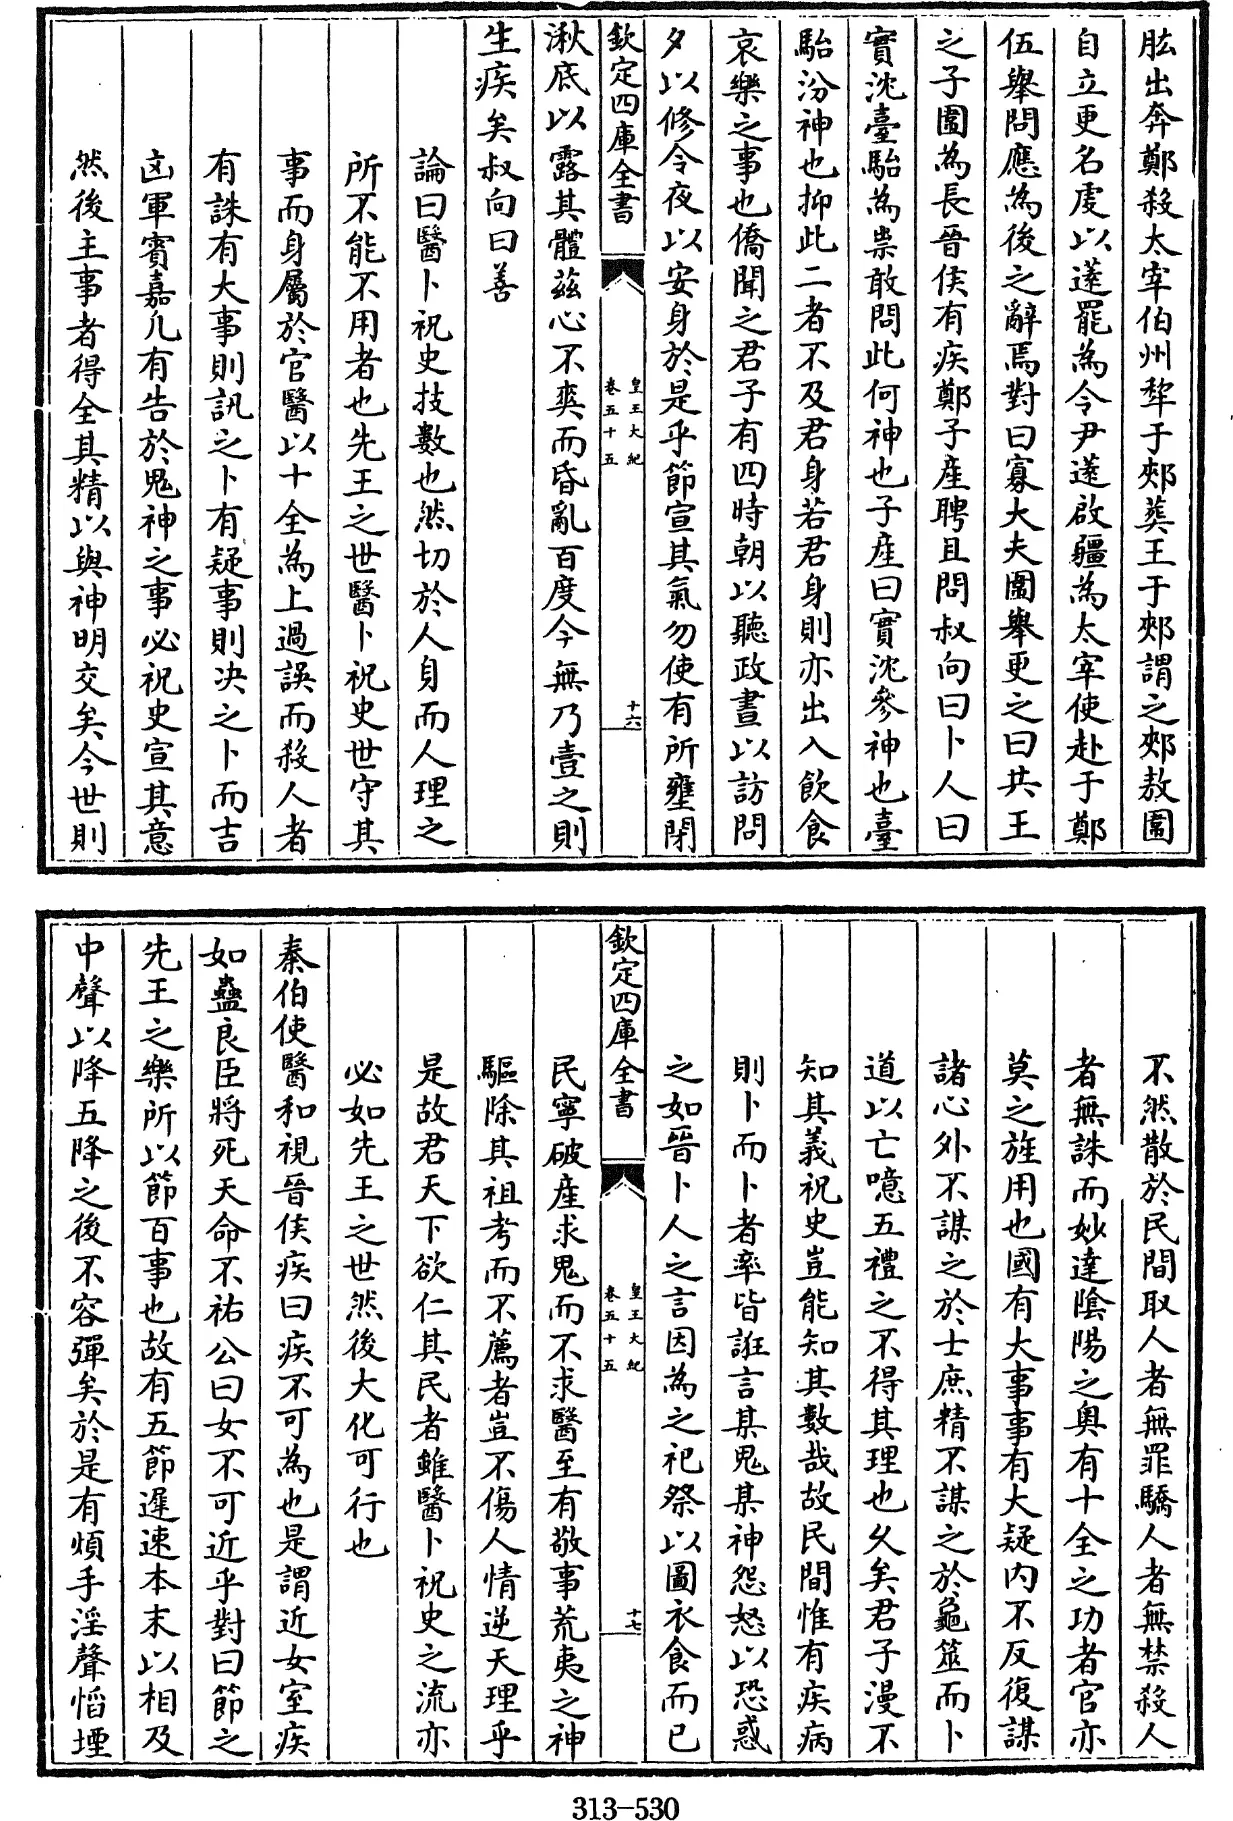 肱出奔鄭殺太宰伯州犂于郟葬王于郟謂之郟敖圍
自立更名虔以薳罷為令尹薳啟疆為太宰使赴于鄭
伍舉問應為後之辭焉對曰寡大夫圍舉更之曰共王
之子圍為長晉侯有疾鄭子產聘且問叔向曰卜人曰
實沈臺駘為祟敢問此何神也子產曰實沈參神也臺
駘汾神也抑此二者不及君身若君身則亦出入飲食
哀樂之事也僑聞之君子有四時朝以聽政晝以訪問
夕以修令夜以安身於是乎節宣其氣勿使有所壅閉
欽定四庫全書
皇王大紀
卷五十五
十六
湫底以露其體茲心不爽而昏亂百度今無乃壹之則
生疾矣叔向曰善
論曰醫卜祝史技數也然切於人身而人理之
所不能不用者也先王之世醫卜祝史世守其
事而身屬於官醫以十全為上過誤而殺人者
有誅有大事則訊之卜有疑事則决之卜而吉
凶軍賓嘉凡有告於鬼神之事必祝史宣其意
然後主事者得全其精以與神明交矣今世則
不然散於民間取人者無罪驕人者無禁殺人
者無誅而妙達陰陽之奧有十全之功者官亦
莫之旌用也國有大事事有大疑内不反復謀
諸心外不謀之於士庶精不謀之於龜筮而卜
道以亡噫五禮之不得其理也久矣君子漫不
知其義祝史豈能知其數哉故民間惟有疾病
則卜而卜者率皆誑言某鬼某神怨怒以恐惑
之如晉卜人之言因為之祀祭以圖衣食而已
欽定四庫全書
皇王大紀
卷五十五
十七
民寧破產求鬼而不求醫至有敬事荒夷之神
驅除其祖考而不薦者豈不傷人情逆天理乎
是故君天下欲仁其民者雖醫卜祝史之流亦
必如先王之世然後大化可行也
秦伯使醫和視晉侯疾曰疾不可為也是謂近女室疾
如蠱良臣將死天命不祐公曰女不可近乎對曰節之
先王之樂所以節百事也故有五節遲速本末以相及
中聲以降五降之後不容彈矣於是有煩手淫聲慆堙
313-530